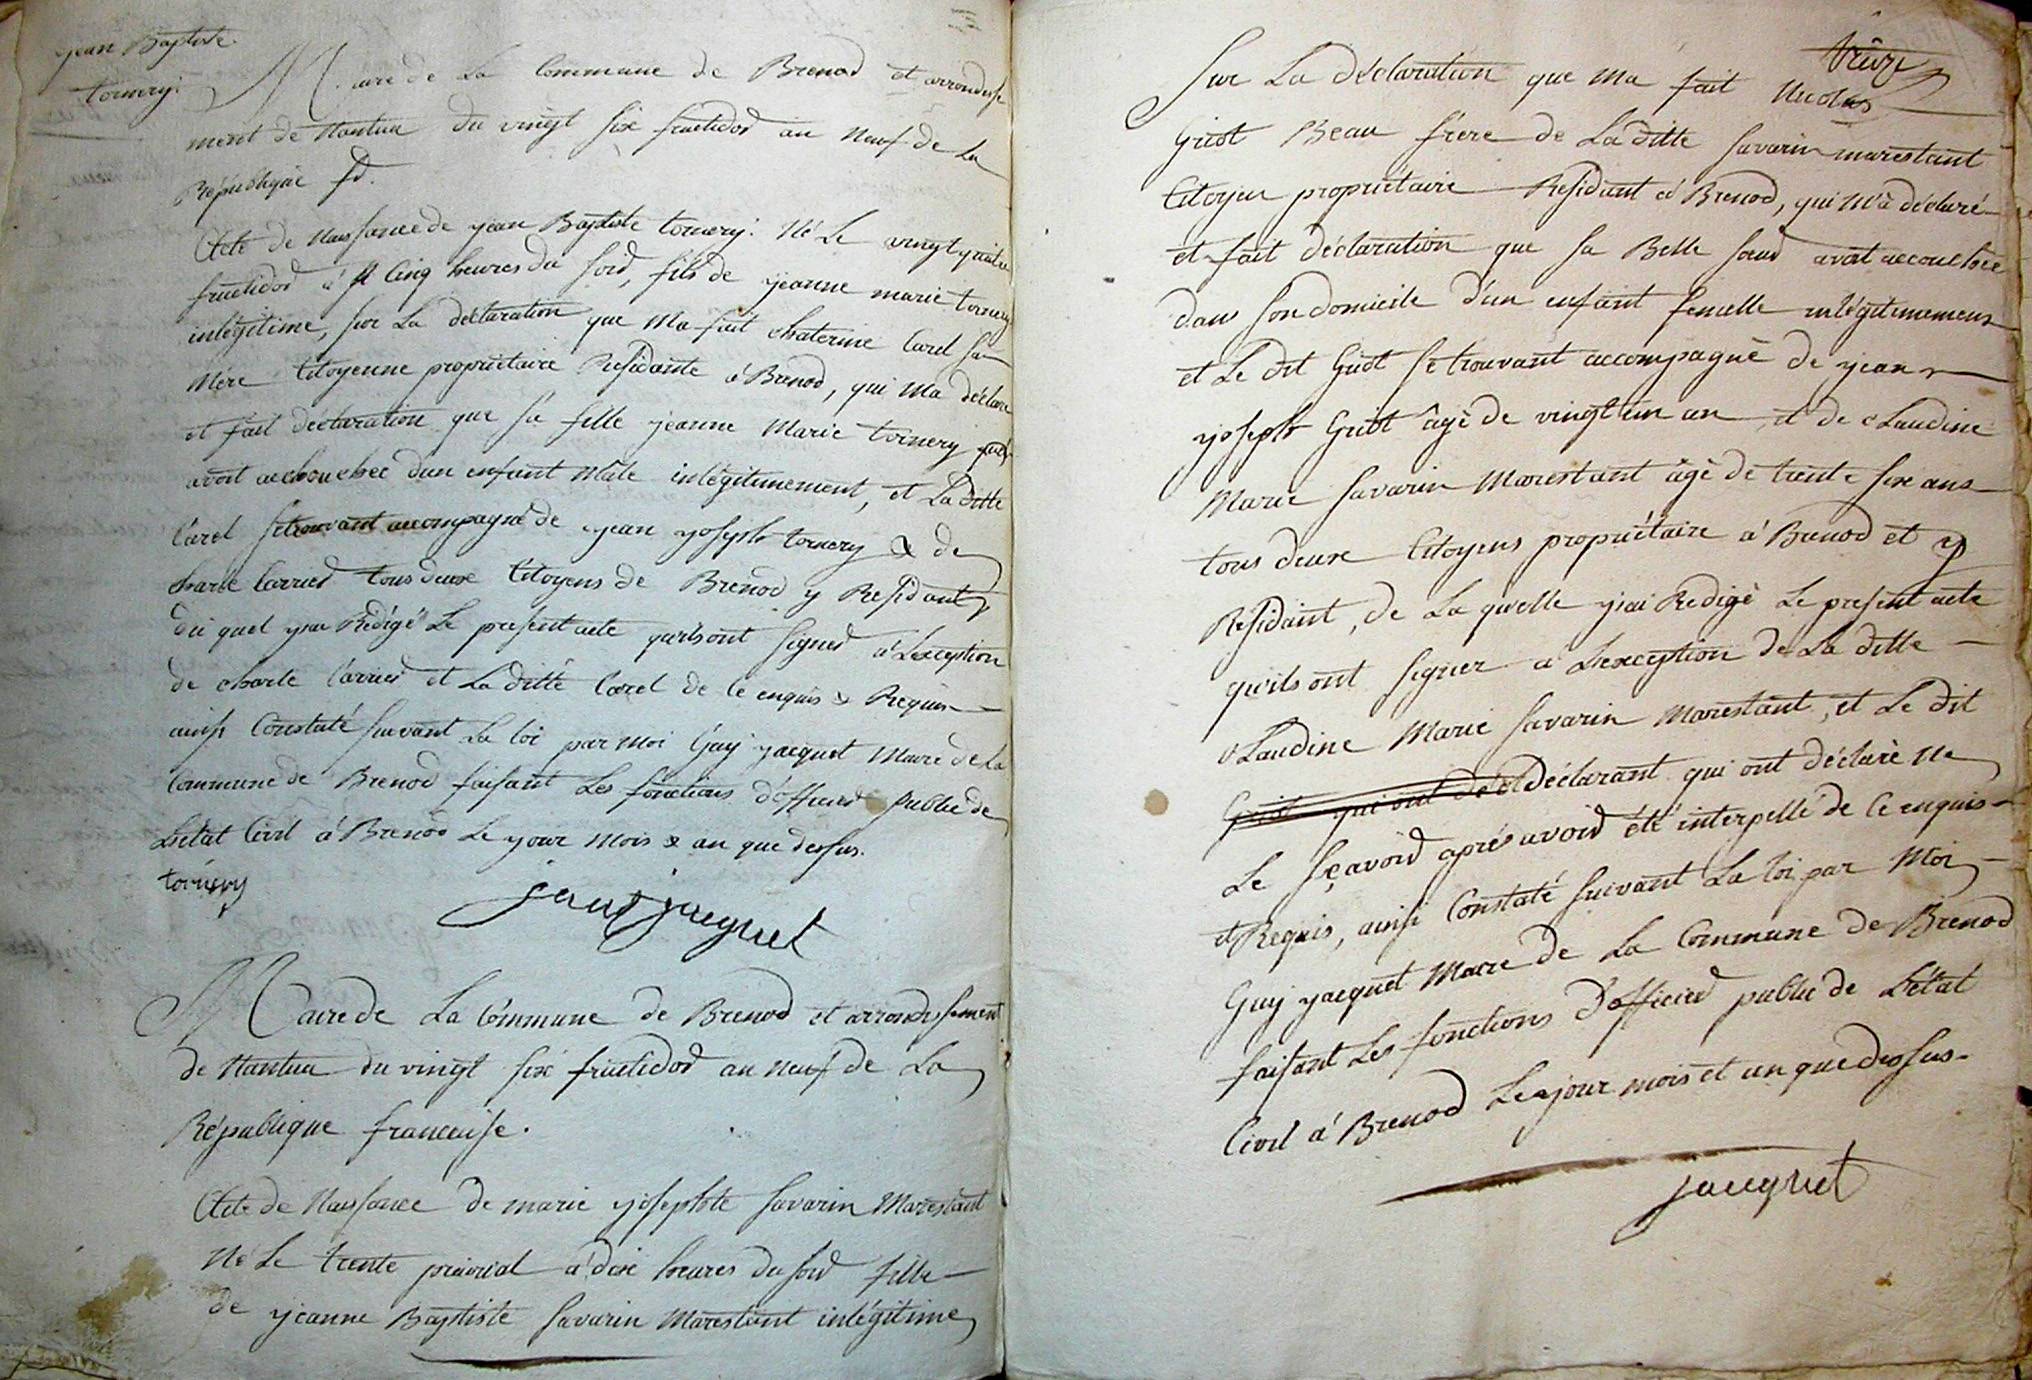 jean Baptiste
tornery
Maire de La Commune de Brenod et arrondisse
ment de Nantua du vingt six fructidor an Neuf de La
République fr.
Acte de Naissance de yean Baptiste tornery. Né Le vingt quatre
fructidor à Cinq heures du soir, fils de yeanne marie tornery
inlégitime, sur La déclaration que Ma fait chaterine Carel sa
Mère Citoyenne propriétaire Résidante à Brenod, qui Ma déclaré
et fait déclaration que sa fille yeanne Marie tornery
avoit acchouchee dun enfant Mâle inlégitimement, et La ditte
Carel se trouvant accompagné de yean yoseph tornery & de
charle Carrier tous deux Citoyens de Brenod y Residant
du quel yai Rédigé Le present acte quils ont signer à L'exception
de charle Carrier et La ditte Carel de ce enquis & Requis
ainsi Constaté suivant La loi par Moi Guy yacquet Maire de La
Commune de Brenod faisant Les fonctions d'officier public de
L'état Civil à Brenod Le your Mois & an que dessus.
tornery
jacquet
Maire de La Commune de Brenod et arrondissement
de Nantua du vingt six fructidor an Neuf de La
République francaise.
Acte de Naissance de marie yosephte Savarin Marestant
Né Le trente prairial à dix heures du soir fille
de yeanne Baptiste Savarin Marestant inlégitime
treize
Sur La déclaration que Ma fait Nicolas
Griot Beau frere de La ditte Savarin marestant
Citoyen propriétaire Residant à Brenod, qui M'à déclaré
et fait déclaration que sa Belle soeur avoit accouchée
dans son domicile d'un enfant femelle inlégitimement
et Le dit Griot se trouvant accompagné de yean
yoseph Griot âgé de vingt un an et de Claudine
Marie Savarin Marestant âgé de trente six ans
tous deux Citoyens propriétaire à Brenod et y
Residant, de La quelle yai Redigé Le present acte
qu'ils ont signer à L'exception de La ditte
Claudine Marie Savarin Marestant, et Le dit
Griot qui ont dé et déclarant qui ont déclaré Ne
Le sçavoir après avoir été interpellé de Ce enquis
et Requis, ainsi Constaté suivant La loi par Moi
Guy yacquet Maire de La Commune de Brenod
faisant Les fonctions d'officier public de L'état
Civil à Brenod Le jour mois et an que dessus
jacquet